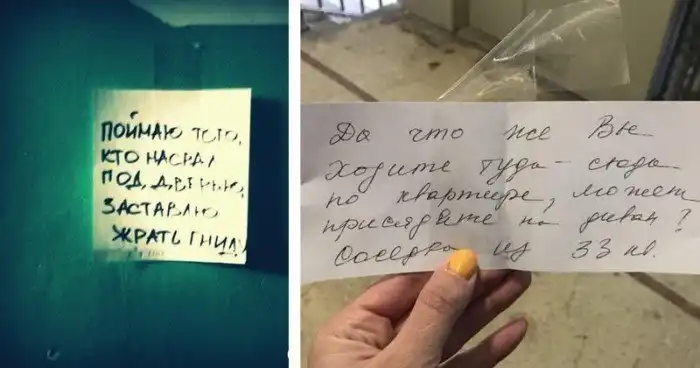 ПОЙМАЮ ТОГО,
КТО НАСРАЛ
ПОД ДВЕРЬЮ,
ЗАСТАВЛЮ
ЖРАТЬ ГНИДУ
Да что же Вы
ходите туда-сюда
по квартире, может
присядите на диван?
Соседка из 33 кв.